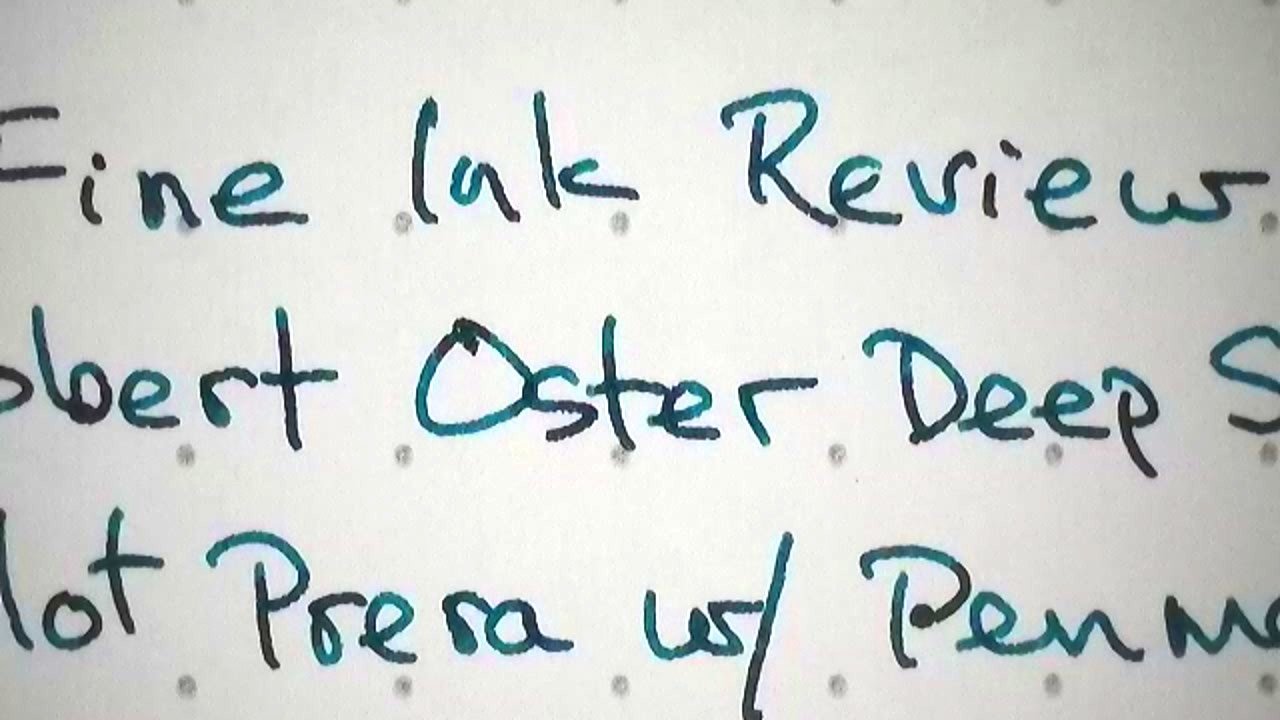 Fine Ink Review
obert Oster Deep S
lot Prera w/ Penma